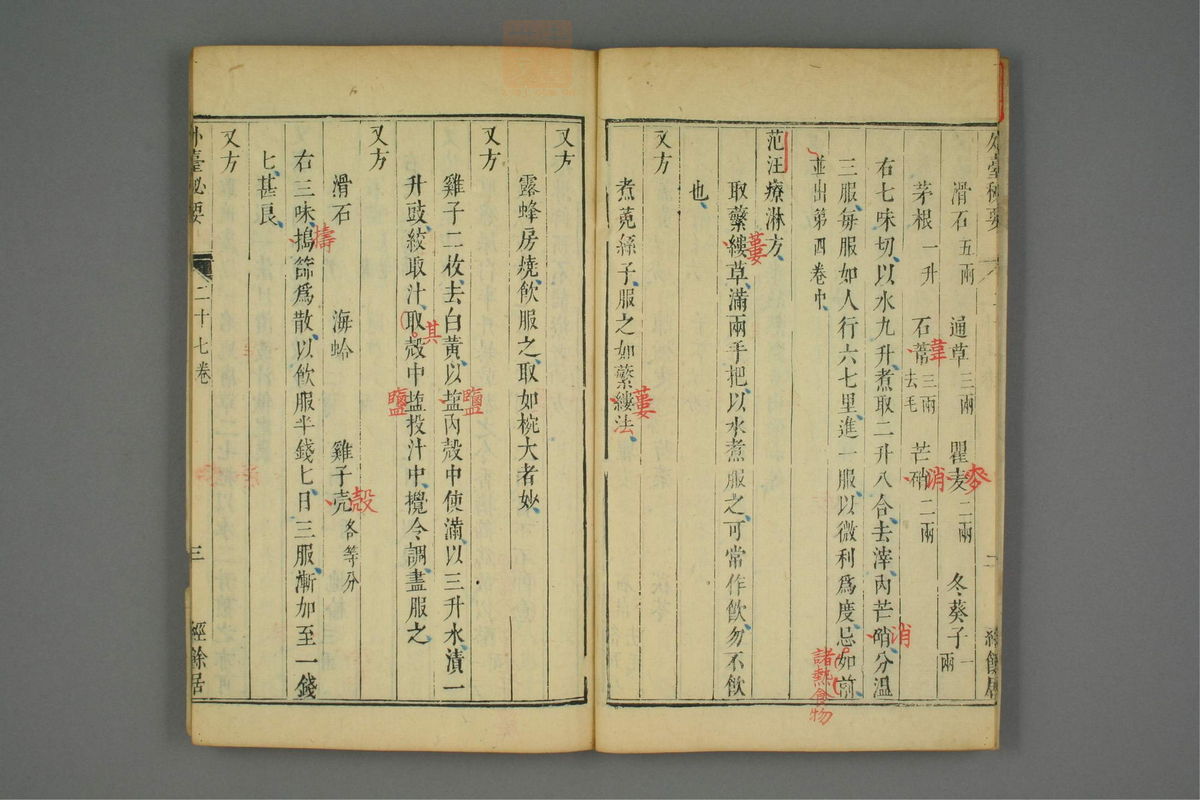 外臺秘要
滑石五兩 通草三兩 瞿麦二兩 冬葵子一兩
麥
茅根一升 石葦三兩去毛 芒硝二兩
韋
消
右七味切以水九升煮取二升八合去滓內芒硝分温
消
三服每服如人行六七里進一服以微利爲度忌如前
諸熱食物
並出第四卷中
范汪療淋方
取蘩縷草滿兩手把以水煮服之可常作飲勿不飲
蔞
也
又方
煮菟絲子服之如蘩縷法
蔞
又方
露蜂房燒飲服之取如椀大者妙
又方
雞子二枚去白黄以盐內殼中使滿以三升水漬一
鹽
升豉絞取汁取殼中盐投汁中攪令調盡服之
其
鹽
又方
滑石 海蛤 雞子壳各等分
殼
右三味搗篩爲散以飲服半錢匕日三服漸加至一錢
擣
匕甚良
又方
外臺秘要 二十七卷 三 經餘居